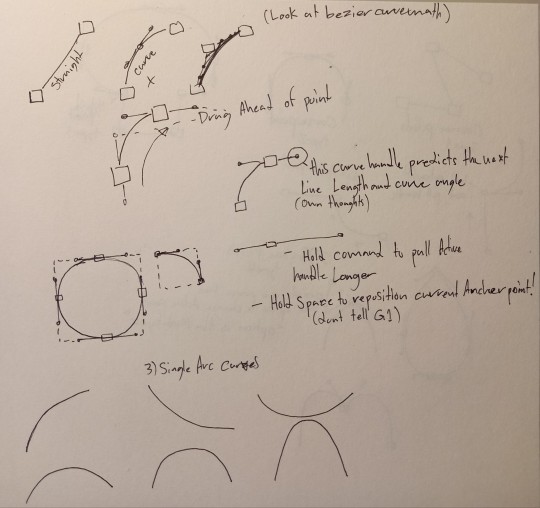 (Look at bezier curve math)
Straight
Curve
x
- Drag Ahead of point
this curve handle predicts the next
Line Length and curve angle
(own thought)
- Hold command to pull Active
handle Longer
- Hold Space to reposition current Anchor point!
(dont tell G1)
3) Single Arc Curves